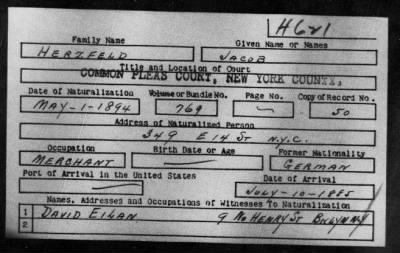 H621
Family Name Given Name or Names
HERZFELD JACOB
Title and Location of Court
COMMON PLEAS COURT, NEW YORK COUNTY,
Date of Naturalization Volume or Bundle No. Page No. Copy of Record No.
MAY-1-1894 769 — 50
Address of Naturalized Person
349 E 14 ST N.Y.C.
Occupation Birth Date or Age Former Nationality
MERCHANT — GERMAN
Port of Arrival in the United States Date of Arrival
— JULY-10-1885
Names, Addresses and Occupations of Witnesses To Naturalization
1 DAVID EILAN 9 No HENRY ST BKLYN N.Y
2